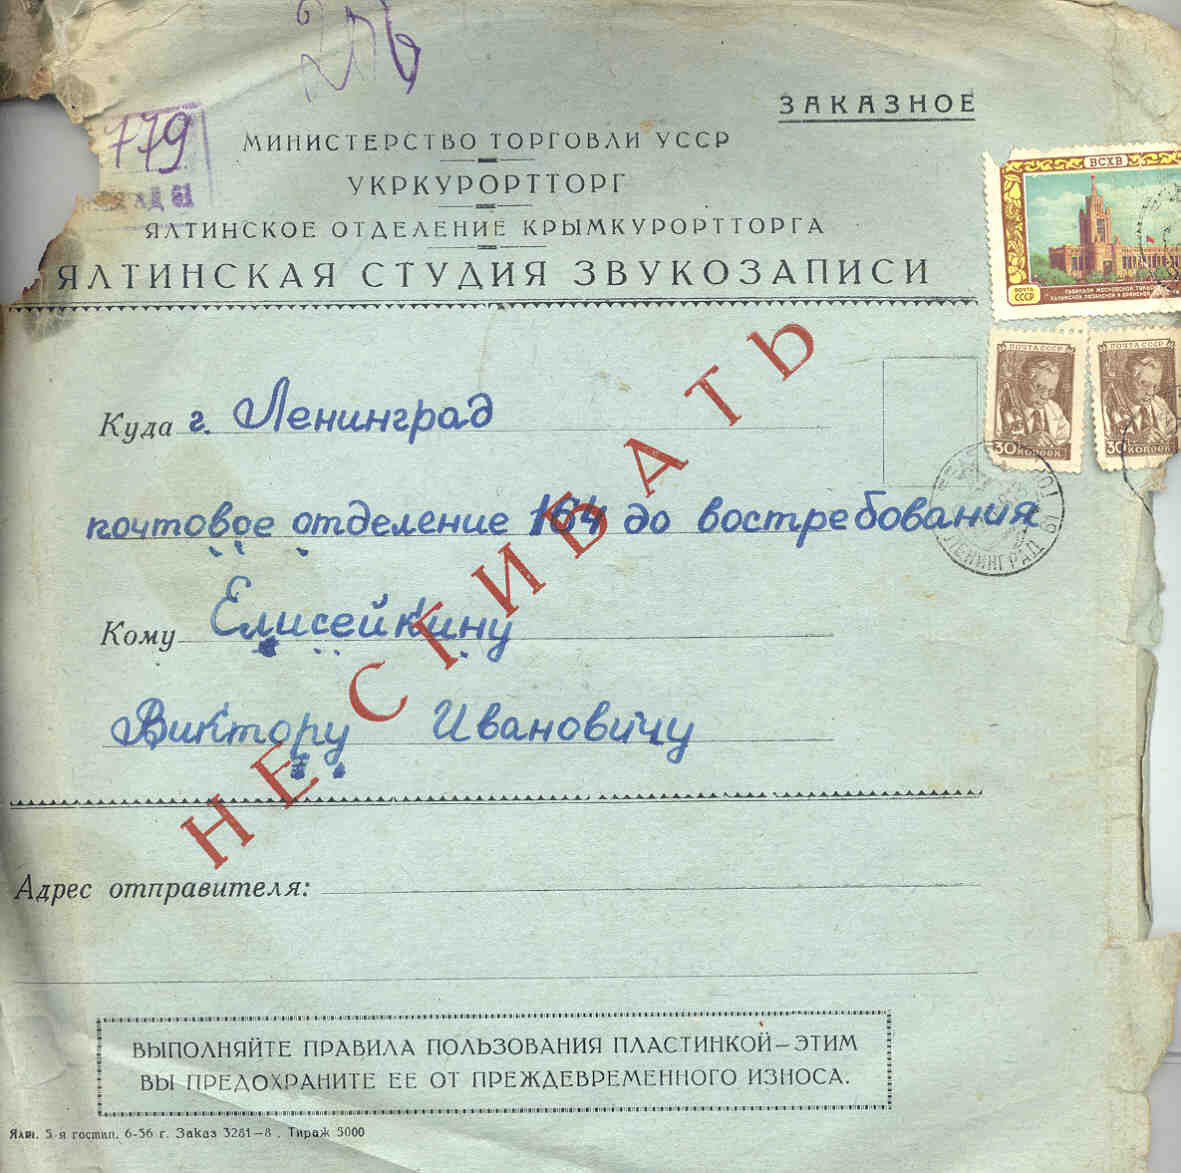 ЗАКАЗНОЕ
779
МИНИСТЕРСТВО ТОРГОВЛИ УССР
УКРКУРОРТТОРГ
ЯЛТИНСКОЕ ОТДЕЛЕНИЕ КРЫМКУРОРТТОРГА
ЯЛТИНСКАЯ СТУДИЯ ЗВУКОЗАПИСИ
ВСХВ
ПОЧТА
СССР
ПОЧТА СССР
30 КОПЕЕК
ПОЧТА СССР
30 КОПЕЕК
Куда г. Ленинград
почтовое отделение 164 до востребования
ЛЕНИНГРАД 61
Кому Елисейкину
Виктору Ивановичу
НЕ СГИБАТЬ
Адрес отправителя:
ВЫПОЛНЯЙТЕ ПРАВИЛА ПОЛЬЗОВАНИЯ ПЛАСТИНКОЙ—ЭТИМ
ВЫ ПРЕДОХРАНИТЕ ЕЕ ОТ ПРЕЖДЕВРЕМЕННОГО ИЗНОСА.
5-я гостип. 6-56 г. Заказ 3281—8. Тираж 5000